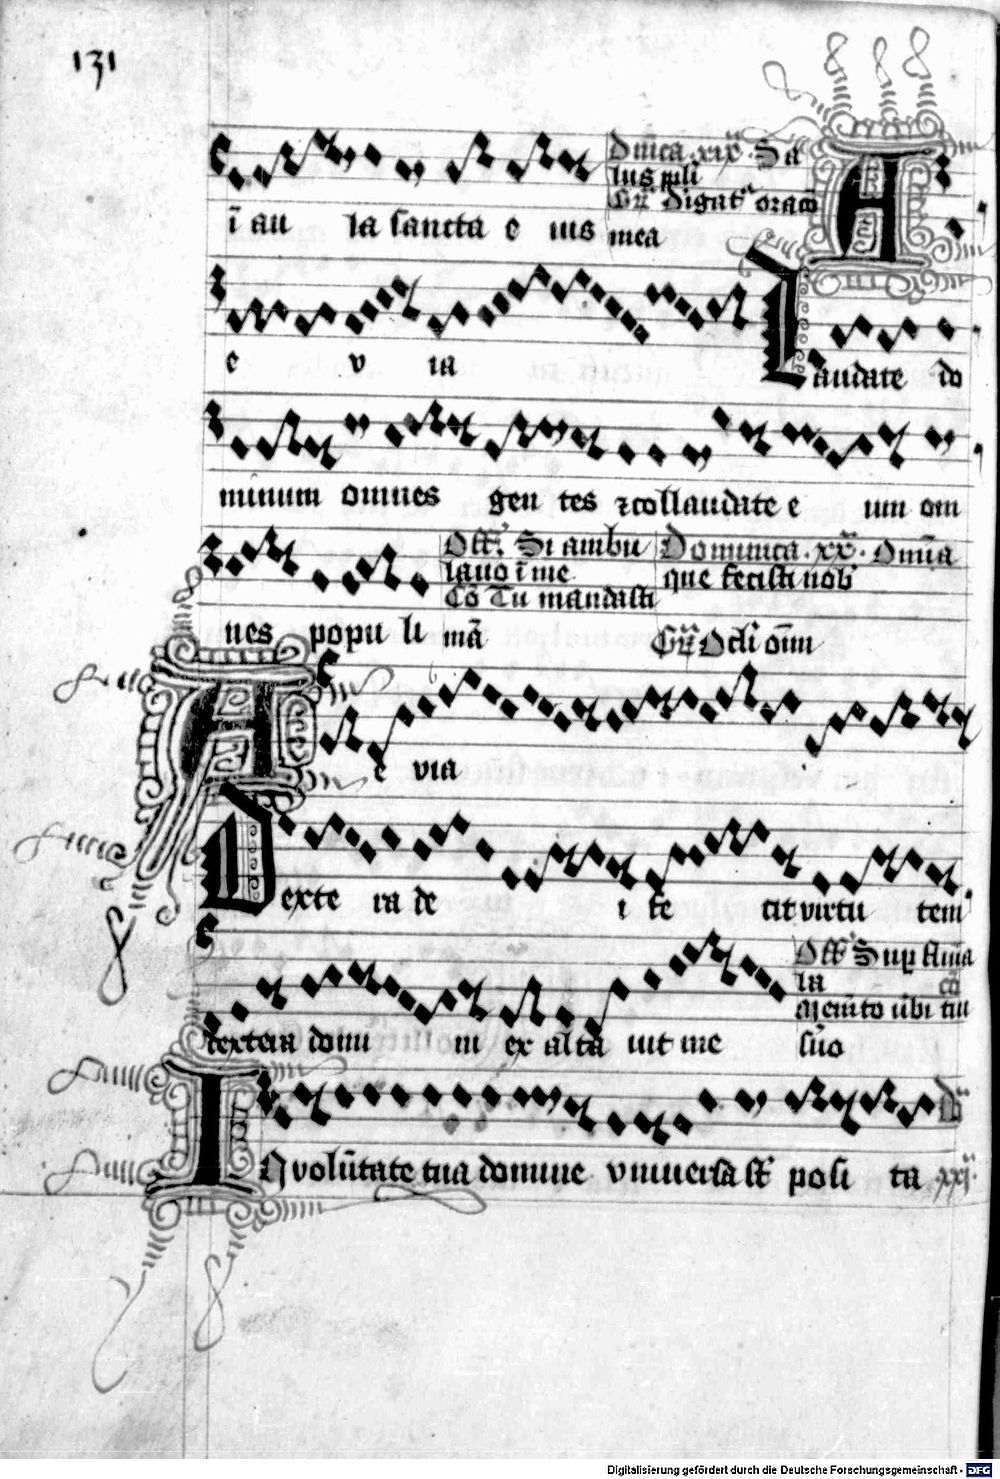 131
Dnica xix Sa
lus pͥli
Gͬͣ Digatͬ oracō
ī au la sancta e ius mea
A
e v ia Laudate do
minum omnes gen tes ⁊collaudate e um om
Off. Si ambu Dominica . xx . Omīa
lauo ī me que fecisti nob
Cō Tu mandasti
nes popu li mā Gͬͣ Ocli oīm
A e via
Dexte ra de i fe cit virtu tem
Off Sup flumīa
la
Memēto vbi tui
dextera domi ni ex alta uit me suo
Dͣ
IN volūtate tua domine vniuersa sͭ posi ta xxi
Digitalisierung gefördert durch die Deutsche Forschungsgemeinschaft - DFG